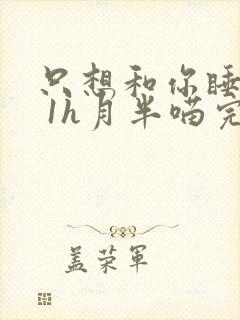 只想和你睡
1h月半喵完
盖荣军